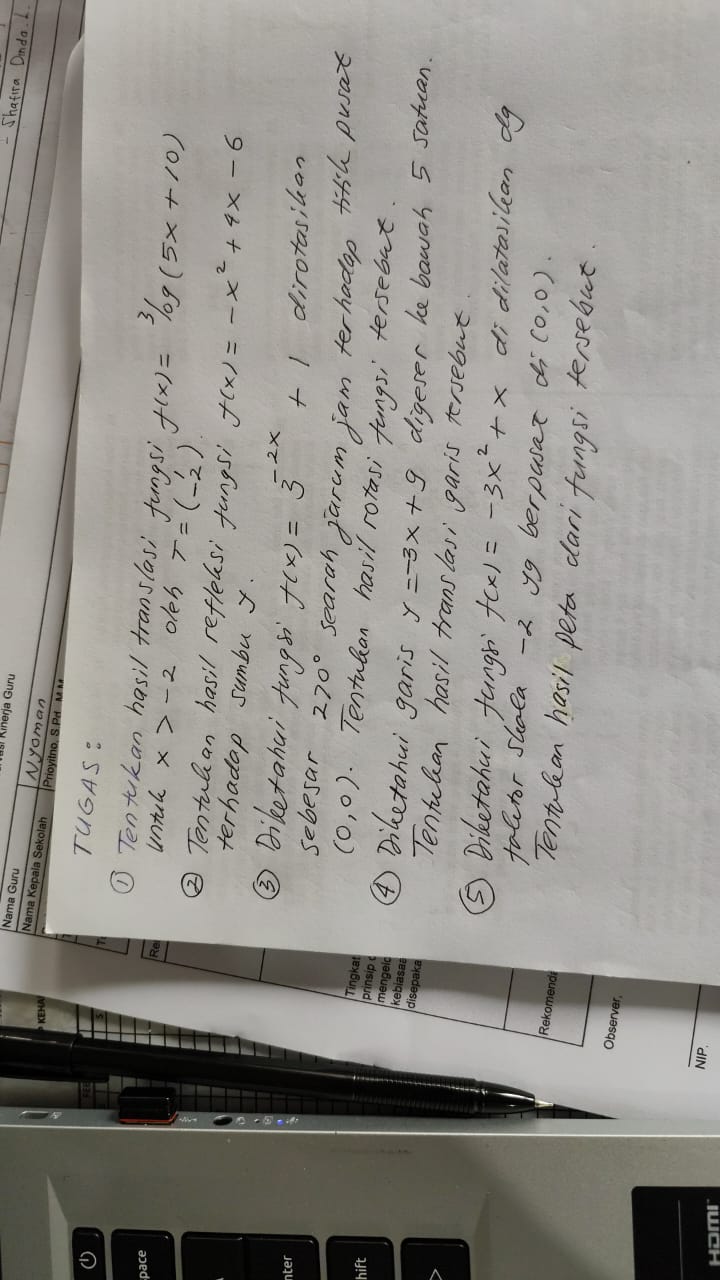 Shafira Dinda.L.
Kinerja Guru
Nama Guru
Nama Kepala Sekolah
Nyoman
Prioyitno, S.Pd, M.M
TUGAS:
① Tentukan hasil translasi fungsi f(x) = ³log (5x + 10)
untuk x > -2 oleh T = (1 -2).
② Tentukan hasil refleksi fungsi f(x) = -x² + 4x - 6
terhadap sumbu y.
③ Diketahui fungsi f(x) = 3⁻²ˣ + 1 dirotasikan
sebesar 270° searah jarum jam terhadap titik pusat
(0,0). Tentukan hasil rotasi fungsi tersebut.
④ Diketahui garis y = -3x + 9 digeser ke bawah 5 satuan.
Tentukan hasil translasi garis tersebut.
⑤ Diketahui fungsi f(x) = -3x² + x di dilatasikan dg
faktor skala -2 yg berpusat di (0,0).
Tentukan hasil peta dari fungsi tersebut.
Tingkat
prinsip
mengelo
kebiasaa
disepaka
Rekomenda
Observer,
NIP.
pace
nter
hift
HDMI